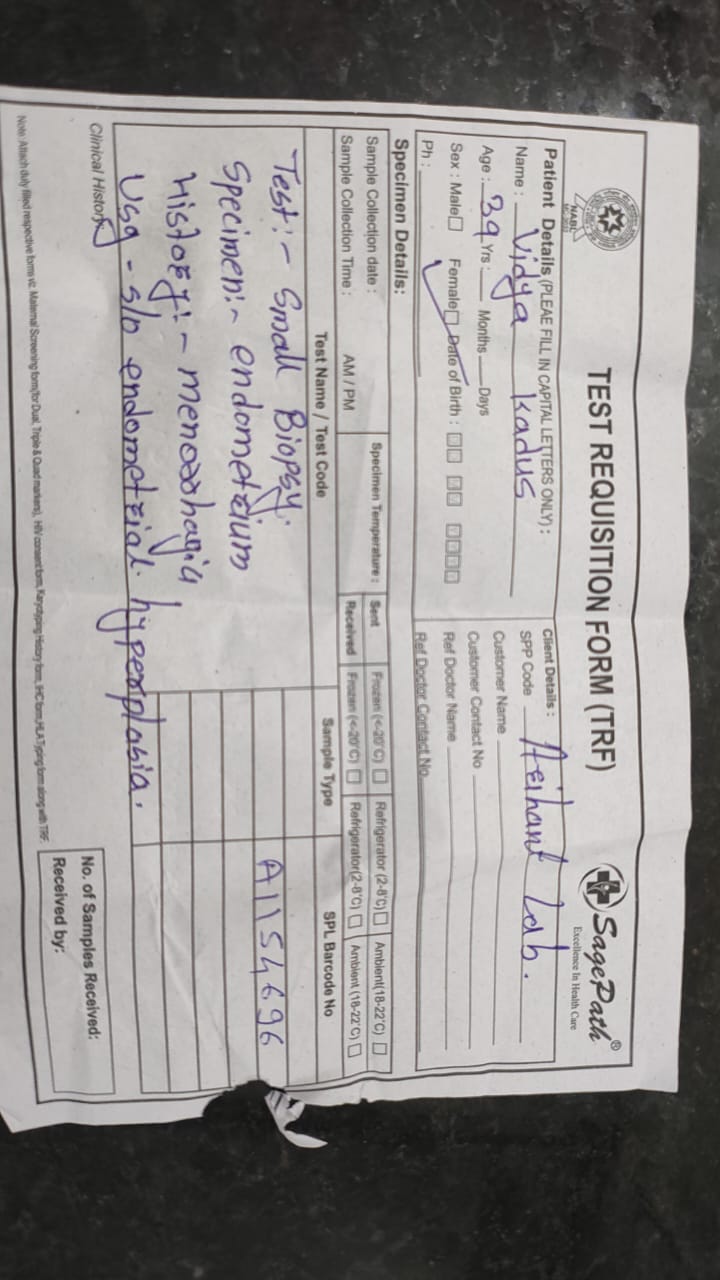 NABL
MC-2632
TEST REQUISITION FORM (TRF)
SagePath®
Excellence In Health Care
Patient Details (PLEAE FILL IN CAPITAL LETTERS ONLY) :
Name : Vidya Kadus
Age : 39 Yrs : Months Days
Sex : Male Female Date of Birth :
Ph :
Client Details :
SPP Code Arihant Lab.
Customer Name
Customer Contact No
Ref Doctor Name
Ref Doctor Contact No
Specimen Details:
Sample Collection date :
Sample Collection Time : AM / PM
Specimen Temperature : Sent Frozen (<-20°C) Refrigerator (2-8°C) Ambient(18-22°C)
Received Frozen (<-20°C) Refrigerator(2-8°C) Ambient (18-22°C)
Test Name / Test Code Sample Type SPL Barcode No
Test:- Small Biopsy. A1154696
Specimen:- endometrium
History:- menorrhagia
Usg - s/o endometrial hyperplasia.
Clinical History
No. of Samples Received:
Received by:
Note: Attach duly filled respective forms viz. Maternal Screening form(for Dual, Triple & Quad markers), HIV consent form, Karyotyping History form, IHC form, HLA Typing form along with TRF.